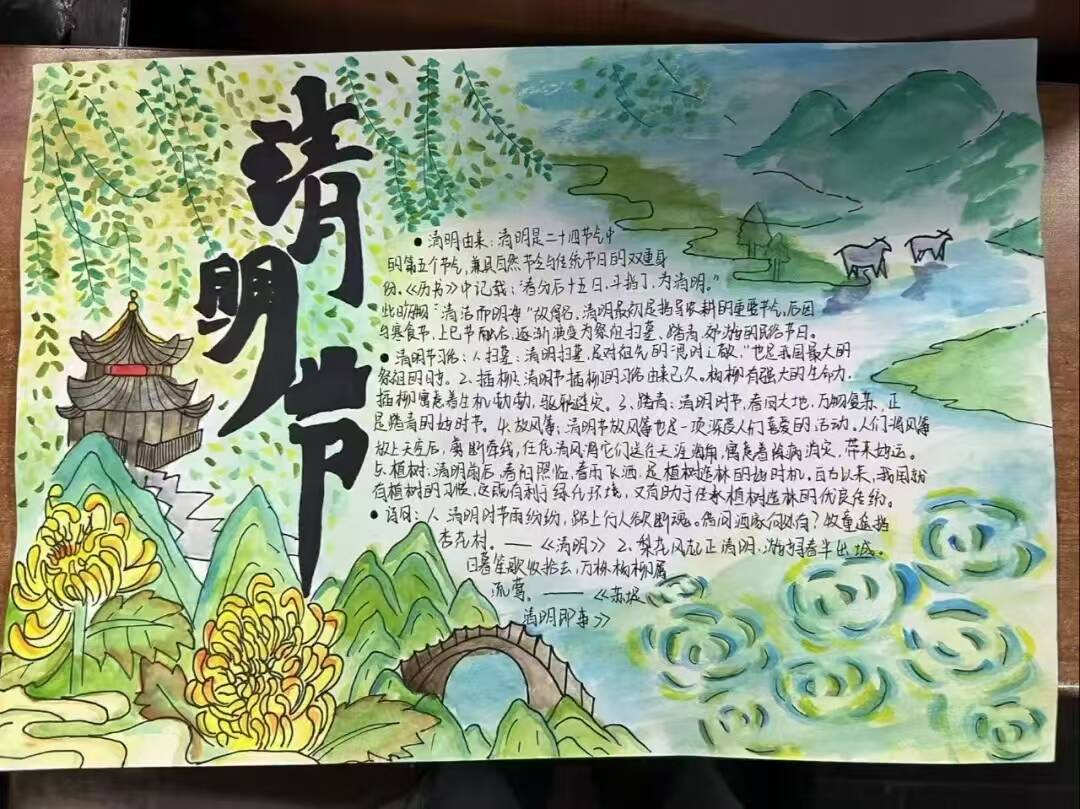 清明节
● 清明由来：清明是二十四节气中
的第五个节气，兼具自然节令与传统节日的双重身
份。《历书》中记载：“春分后十五日，斗指丁，为清明。”
此时万物“清洁而明净”故得名，清明最初是指导农耕的重要节气，后因
与寒食节、上巳节融合，逐渐演变为祭祖扫墓、踏青郊游的民俗节日。
● 清明节习俗：1、扫墓：清明扫墓，是对祖先的“思时之敬，”也是我国最大的
祭祖的日子。2、插柳：清明节插柳的习俗由来已久。杨柳有强大的生命力，
插柳寓意着生机勃勃，驱邪避灾。3、踏青：清明时节，春回大地，万物复苏，正
是踏青的好时节。4、放风筝：清明节放风筝也是一项深受人们喜爱的活动。人们将风筝
放上天空后，剪断牵线，任凭清风将它们送往天涯海角，寓意着除病消灾，带来好运。
5、植树：清明前后，春阳照临，春雨飞洒，是植树造林的好时机。自古以来，我国就
有植树的习惯，这既有利于绿化环境，又有助于传承植树造林的优良传统。
● 诗词：1、清明时节雨纷纷，路上行人欲断魂。借问酒家何处有？牧童遥指
杏花村。——《清明》 2、梨花风起正清明，游子寻春半出城。
日暮笙歌收拾去，万株杨柳属
流莺。——《苏堤
清明即事》